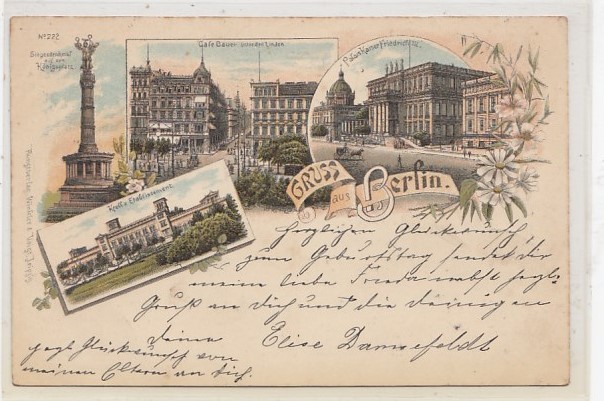 No 222
Siegesdenkmal
auf dem
Königsplatz.
Cafe Bauer unter den Linden
Palais Kaiser Friedrich III.
Kroll's Etablissement.
GRUSS
aus
Berlin.
Herzlichen Glückwunsch
zum Geburtstag sendet dir
meine liebe Frieda nebst herzl.
Gruß an dich und die deinigen
deine
Elise Dannefeldt
herzl Glückwunsch von
meinen Eltern an dich.